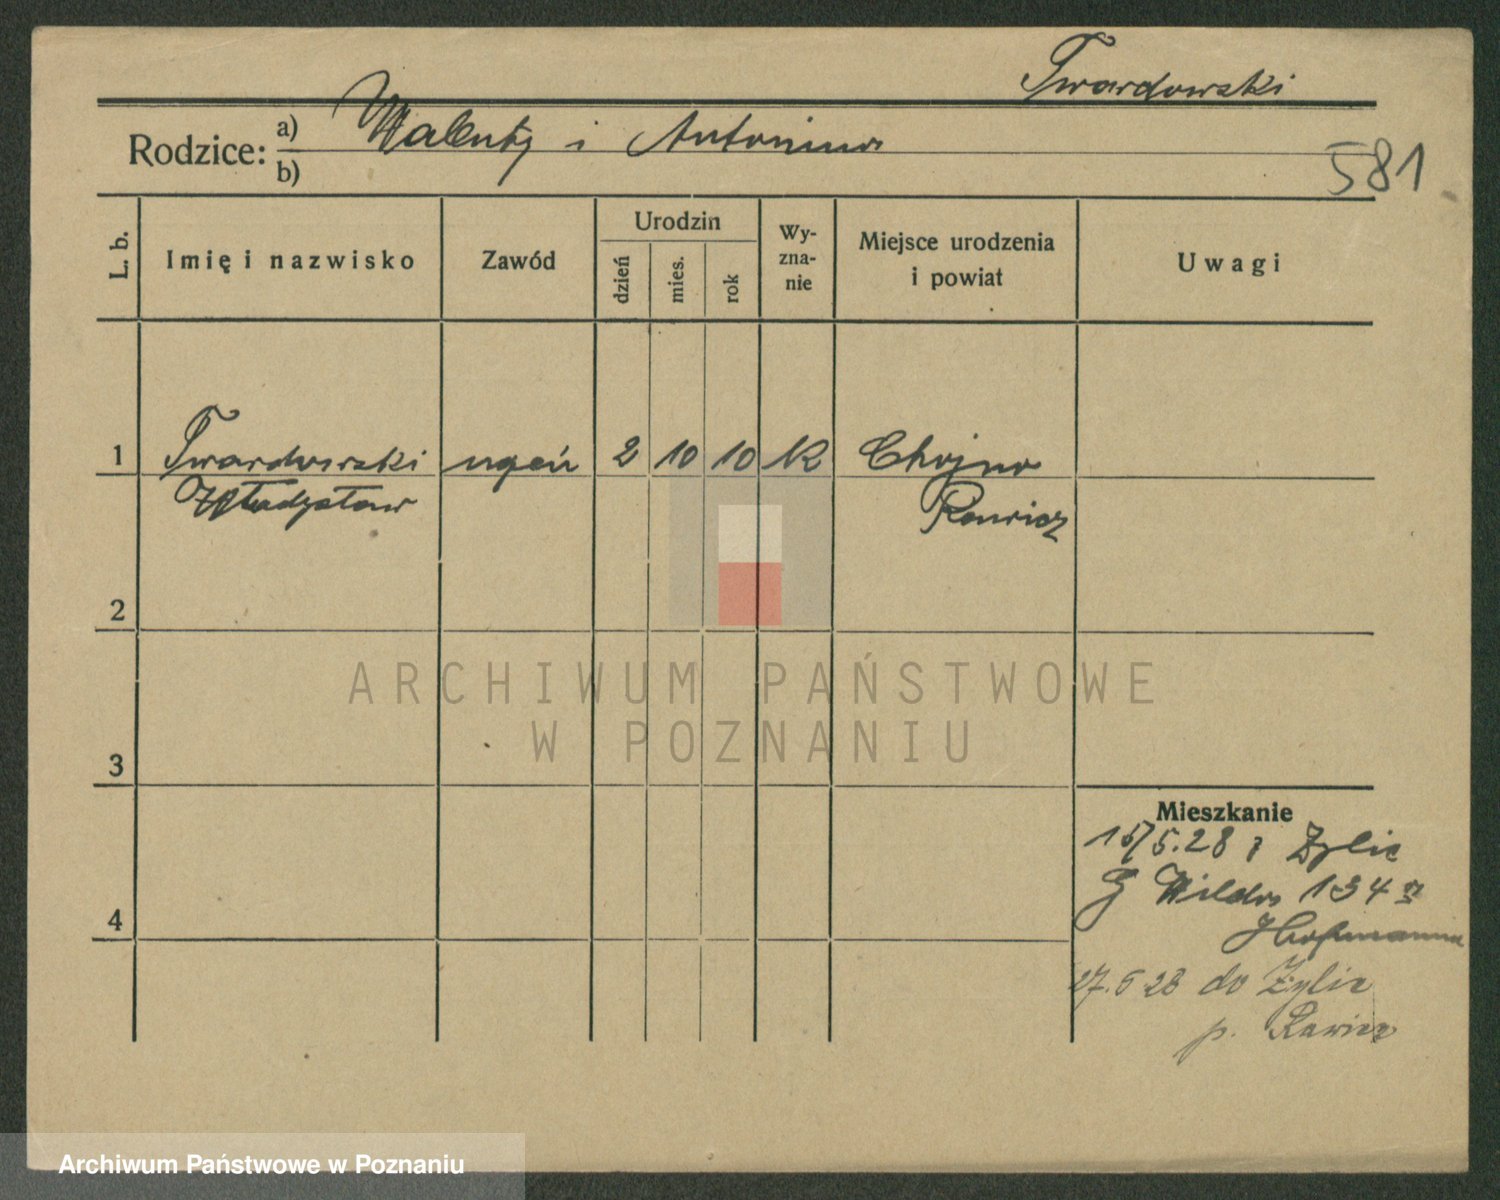 Twardowski
Rodzice: a) Walenty i Antonina
b)
581
L. b.
Imię i nazwisko
Zawód
Urodzin
dzień
mies.
rok
Wy-
zna-
nie
Miejsce urodzenia
i powiat
Uwagi
1 Twardowski uczeń 2 10 10 K Chojno
Władysław Rawicz
2
3
4
Mieszkanie
15/5.28 z Żylic
G Wilda 134
Hofmanna
27.6 28 do Żylic
p. Rawicz
ARCHIWUM PAŃSTWOWE
W POZNANIU
Archiwum Państwowe w Poznaniu